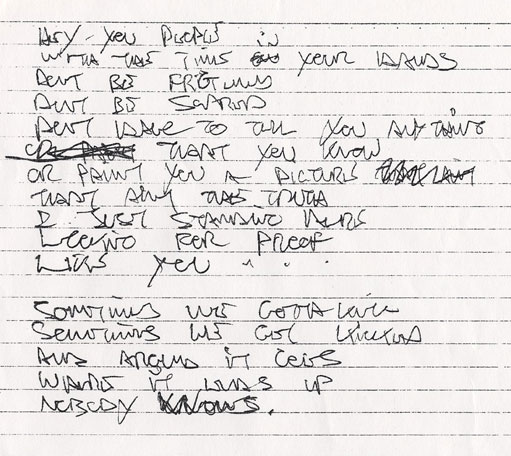 HEY - YOU PEOPLE IN
WITH THE TIME YOUR HANDS
DON'T BE FRETING
DON'T BE SCARED
DON'T HAVE TO TELL YOU ANYTHING
THAT YOU KNOW
OR PAINT YOU A PICTURE
THAT AINT THE TRUTH
I JUST STANDING HERE
LOOKING FOR PROOF
LIKE YOU . . . .
SOMETIMES WE GOTTA KICK
SOMETIMES WE GET KICKED
AND AROUND IT GOES
WHERE IT ENDS UP
NOBODY KNOWS.